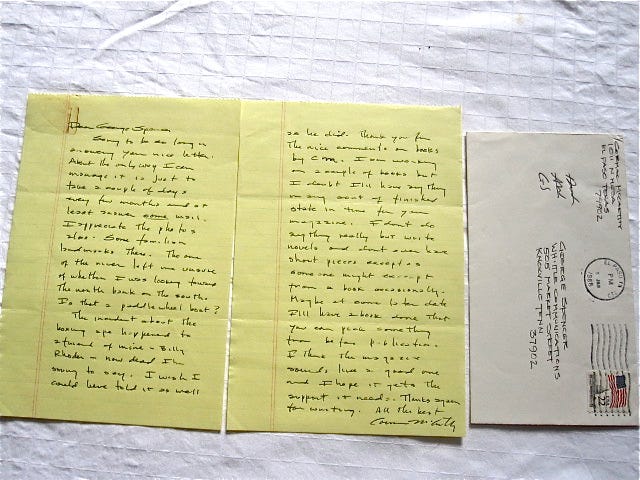 Dear George Spencer
Sorry to be so long in
answering your nice letter.
About the only way I can
manage it is just to
take a couple of days
every few months and at
least answer some mail.
I appreciate the photos
also. Some familiar
landmarks there. The one
of the river left me unsure
of whether I was looking toward
the north bank or the south.
Is that a paddlewheel boat?
The incident about the
boxing ape happened to
a friend of mine - Billy
Rhodes - now dead I'm
sorry to say. I wish I
could have told it as well
as he did. Thank you for
the nice comments on books
by CMcC. I am working
on a couple of books but
I doubt I'll have anything
in any sort of finished
state in time for your
magazine. I don't do
anything really but write
novels and don't even have
short pieces except as
someone might excerpt
from a book occasionally.
Maybe at some later date
I'll have a book done that
you can pick something
from before publication.
I think the magazine
sounds like a good one
and I hope it gets the
support it needs. Thanks again
for writing. All the best
Cormac McCarthy
CORMAC McCARTHY
1011 N MESA
EL PASO TEXAS
79902
PM
1988
GEORGE SPENCER
WHITTLE COMMUNICATIONS
505 MARKET STREET
KNOXVILLE TENN
37902
22